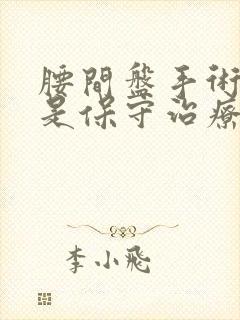 腰間盤手術
是保守治療
李小飛